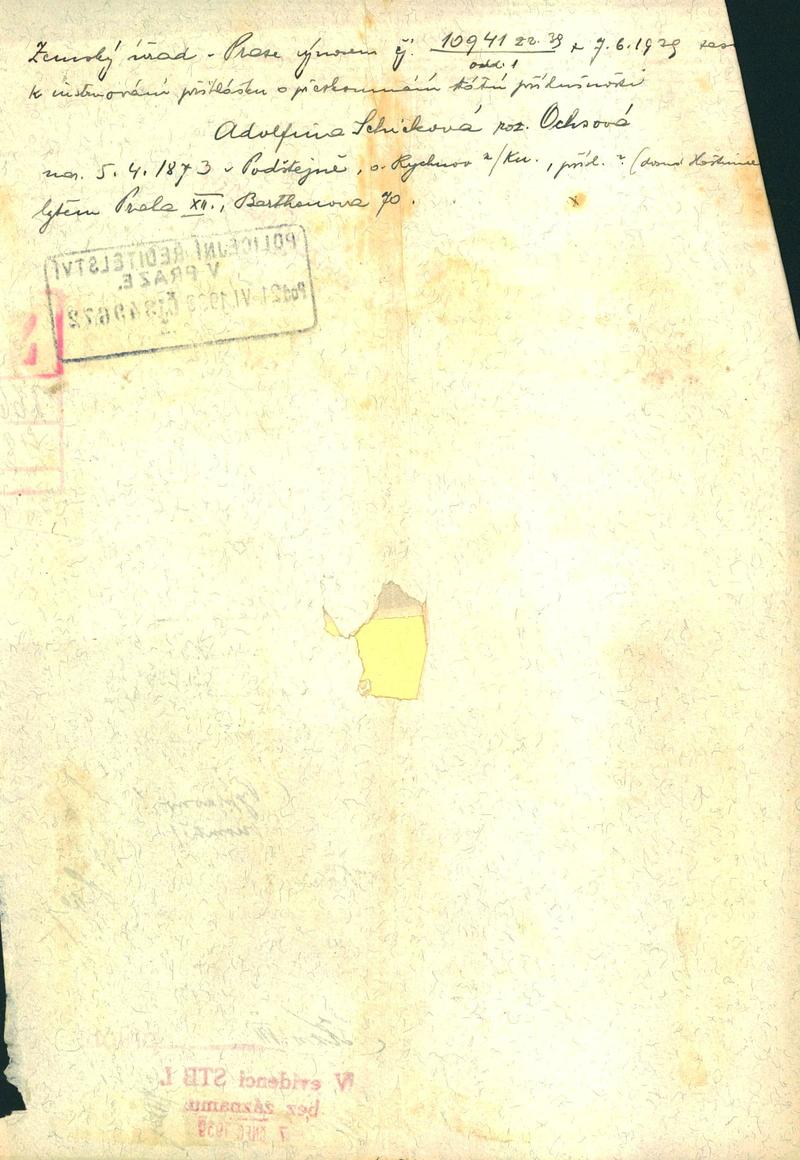 Zemský úřad v Praze výnosem čj. 10941 ze 7.6.1939
odd. 1
k instruování přihlášku o přezkoumání státní příslušnosti
Adolfina Schicková roz. Ochsová
nar. 5.4.1873 v Podštejně, o. Rychnov n/Kn., přísl. ? (
bytem Praha XII., Barthouova 70.
POLICEJNÍ ŘEDITELSTVÍ
V PRAZE.
Pod. 21 VI. 1939 Čj. 349672
V evidenci STB I.
bez záznamu.
7